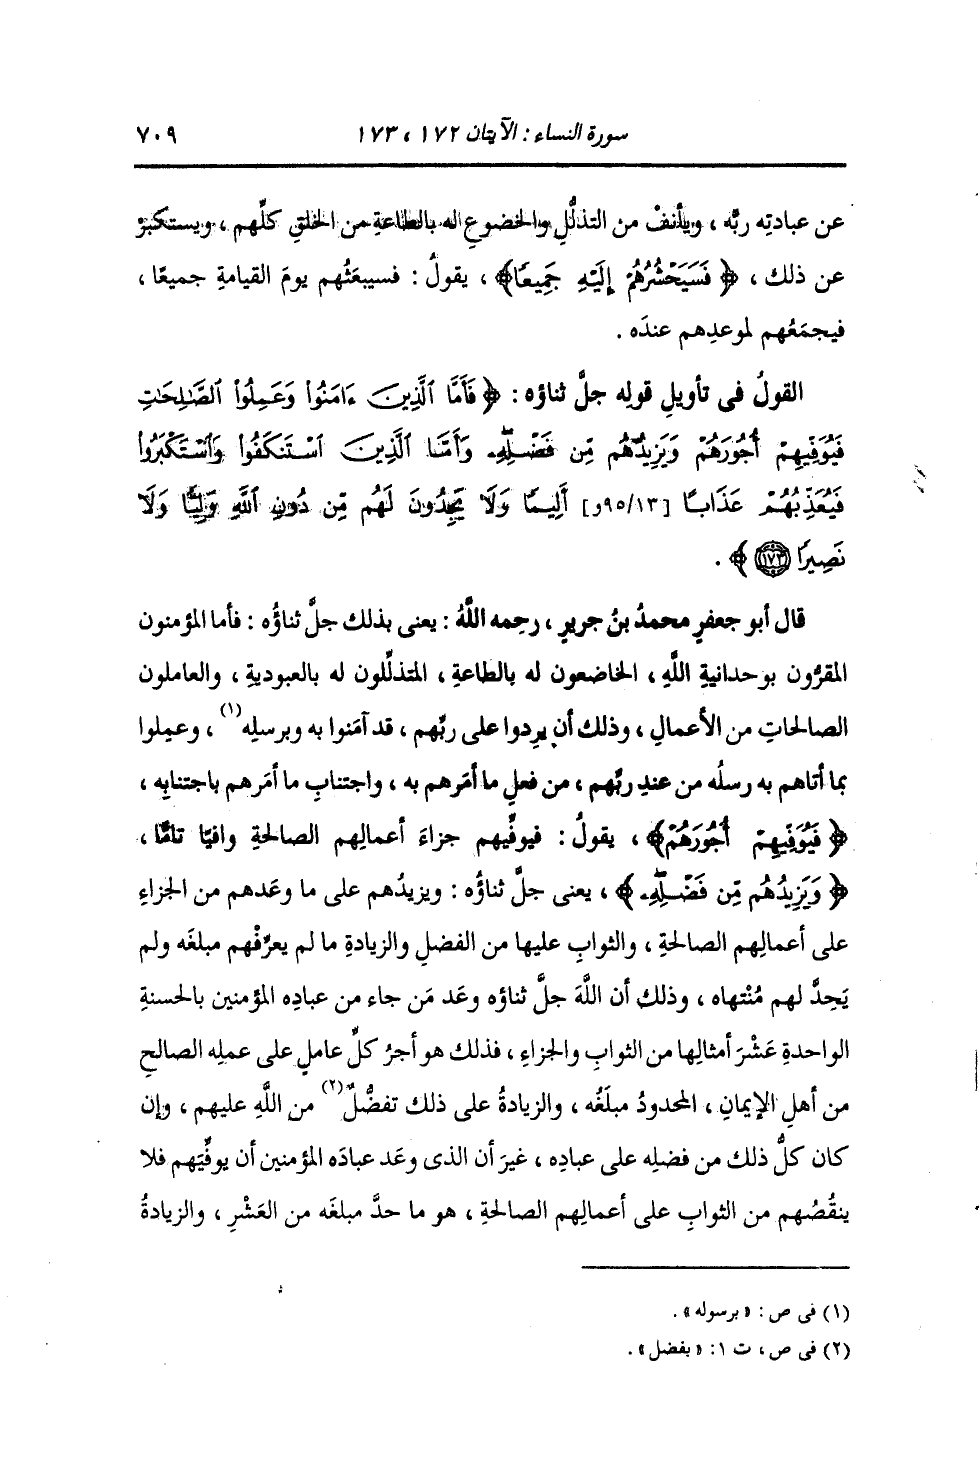 سورة النساء : الآيتان ١٧٢ ، ١٧٣ ٧٠٩
عن عبادتِه ربَّه ، ويأنفْ من التذلُّلِ والخضوعِ له بالطاعةِ من الخلقِ كلِّهم ، ويستكبرْ
عن ذلك ، ﴿ فَسَيَحْشُرُهُمْ إِلَيْهِ جَمِيعًا﴾ ، يقولُ : فسيبعَثُهم يومَ القيامةِ جميعًا ،
فيجمَعُهم لموعدِهم عندَه .
القولُ فى تأويلِ قولِه جلَّ ثناؤه : ﴿ فَأَمَّا ٱلَّذِينَ ءَامَنُوا۟ وَعَمِلُوا۟ ٱلصَّٰلِحَٰتِ
فَيُوَفِّيهِمْ أُجُورَهُمْ وَيَزِيدُهُم مِّن فَضْلِهِۦ وَأَمَّا ٱلَّذِينَ ٱسْتَنكَفُوا۟ وَٱسْتَكْبَرُوا۟
فَيُعَذِّبُهُمْ عَذَابًا [٩٥/١٣و] أَلِيمًا وَلَا يَجِدُونَ لَهُم مِّن دُونِ ٱللَّهِ وَلِيًّا وَلَا
نَصِيرًا ١٧٣ ﴾ .
قال أبو جعفرٍ محمدُ بنُ جريرٍ ، رحِمه اللَّهُ : يعنى بذلك جلَّ ثناؤُه : فأما المؤمنون
المقرُّون بوحدانيةِ اللَّهِ ، الخاضعون له بالطاعةِ ، المتذلِّلون له بالعبوديةِ ، والعاملون
الصالحاتِ من الأعمالِ ، وذلك أن يرِدوا على ربِّهم ، قد آمَنوا به وبرسلِه(١) ، وعمِلوا
بما أتاهم به رسلُه من عندِ ربِّهم ، من فعلِ ما أمَرهم به ، واجتنابِ ما أمَرهم باجتنابِه ،
﴿ فَيُوَفِّيهِمْ أُجُورَهُمْ﴾ ، يقولُ : فيوفِّيهم جزاءَ أعمالِهم الصالحةِ وافيًا تامًّا ،
﴿ وَيَزِيدُهُم مِّن فَضْلِهِۦ ﴾ ، يعنى جلَّ ثناؤُه : ويزيدُهم على ما وعَدهم من الجزاءِ
على أعمالِهم الصالحةِ ، والثوابِ عليها من الفضلِ والزيادةِ ما لم يعرِّفْهم مبلغَه ولم
يَحِدَّ لهم مُنْتهاه ، وذلك أن اللَّهَ جلَّ ثناؤه وعَد مَن جاء من عبادِه المؤمنين بالحسنةِ
الواحدةِ عَشْرَ أمثالِها من الثوابِ والجزاءِ ، فذلك هو أجرُ كلِّ عاملٍ على عملِه الصالحِ
من أهلِ الإيمانِ ، المحدودُ مبلَغُه ، والزيادةُ على ذلك تفضُّلٌ(٢) من اللَّهِ عليهم ، وإن
كان كلُّ ذلك من فضلِه على عبادِه ، غيرَ أن الذى وعَد عبادَه المؤمنين أن يوفِّيَهم فلا
ينقُصُهم من الثوابِ على أعمالِهم الصالحةِ ، هو ما حدَّ مبلغَه من العَشْرِ ، والزيادةُ
(١) فى ص : « برسوله » .
(٢) فى ص ، ت ١ : « بفضل » .